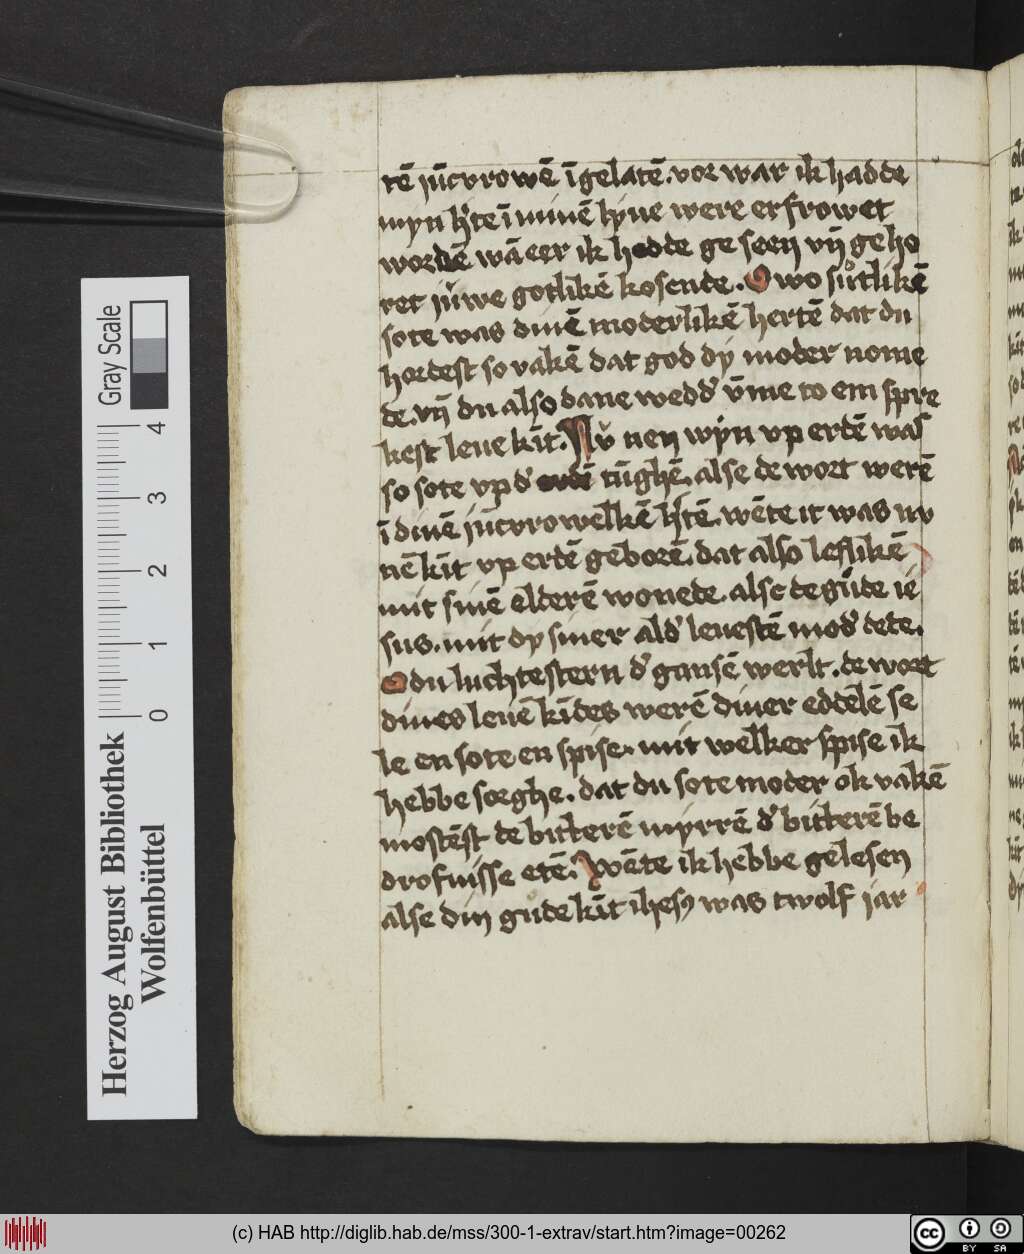 tē jūcvrowē ī gelatē. vor war ik hadde
myn h'te ī minē lyue were erfrowet
wordē wā eer ik hedde ge seen vn̄ geho
ret juwe gotlikē kosende. O wo sutlikē
sote was dinē moderlikē hertē dat du
hordest so vakē dat god dy moder nome
de. vn̄ du also dane wedd' v̄me to em spre
kest leue kīt. Nv nen wyn vp ertē was
so sote vp d' erdē tūghē. alse de wort werē
ī dinē jūcvrowelkē h'tē. wēte it was nv
nē kīt vp ertē geborē. dat also leflikē
mit sinē elderē wonede. alse de gude ie
sus. mit dy siner ald' leuestē mod' dede.
O du luchtestern d' gansē werlt. de wort
dines leuē kīdes werē diner eddelē se
le en sote en spise. mit welker spise ik
hebbe sorghe. dat du sote moder ok vakē
mostēst de bitterē myrrē d' bitterē be
drofnisse etē. Wēte ik hebbe gelesen
alse din gude kīt ihesꝯ was twolf jar
Gray Scale
4
3
2
1
0
Herzog August Bibliothek
Wolfenbüttel
(c) HAB http://diglib.hab.de/mss/300-1-extrav/start.htm?image=00262
cc BY SA